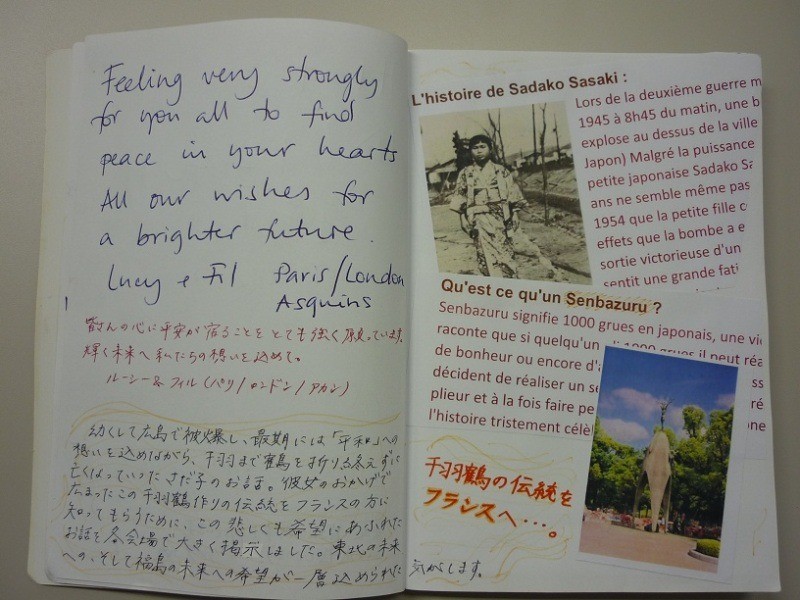 Feeling very strongly
for you all to find
peace in your hearts
All our wishes for
a brighter future.
Lucy & Fil Paris/London
Asquins
皆さんの心に平安が宿ることをとても強く願っています。
輝く未来へ私たちの想いを込めて。
ルーシー&フィル(パリ/ロンドン/アカン)
幼くして広島で被爆し、最期には「平和」への
想いを込めながら、千羽まで鶴を折り終えずに
亡くなっていったさだ子のお話。彼女のおかげで
広まったこの千羽鶴作りの伝統をフランスの方に
知ってもらうために、この悲しくも希望にあふれた
お話を各会場で大きく掲示しました。東北の未来
への、そして福島の未来への希望が一層込められた
気がします。
L'histoire de Sadako Sasaki :
Lors de la deuxième guerre m
1945 à 8h45 du matin, une b
explose au dessus de la ville
Japon) Malgré la puissance
petite japonaise Sadako Sa
ans ne semble même pas
1954 que la petite fille c
effets que la bombe a e
sortie victorieuse d'un
sentit une grande fati
Qu'est ce qu'un Senbazuru ?
Senbazuru signifie 1000 grues en japonais, une vi
raconte que si quelqu'un 1000 grues il peut réa
de bonheur ou encore d'
décident de réaliser un se
plieur et à la fois faire pe
l'histoire tristement célè
千羽鶴の伝統を
フランスへ・・・。